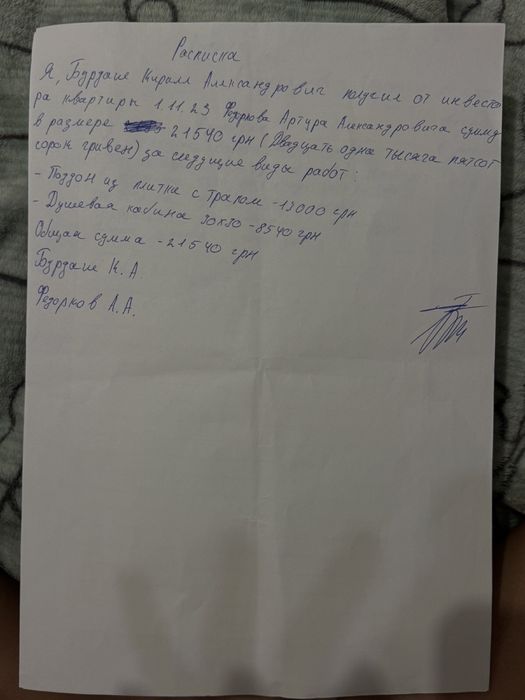 Расписка
Я, Бурдаше Кирилл Александрович получил от инвесто
ра квартиры 1.11.23 Федоркова Артура Александровича сумму
в размере 21540 грн (Двадцать одна тысяча пятсот
сорок гривен) за следущие виды работ:
- Поддон из плитки с трапом - 13000 грн
- Душевая кабина 90х90 - 8540 грн
Общая сумма - 21540 грн
Бурдаше К. А.
Федорков А. А.